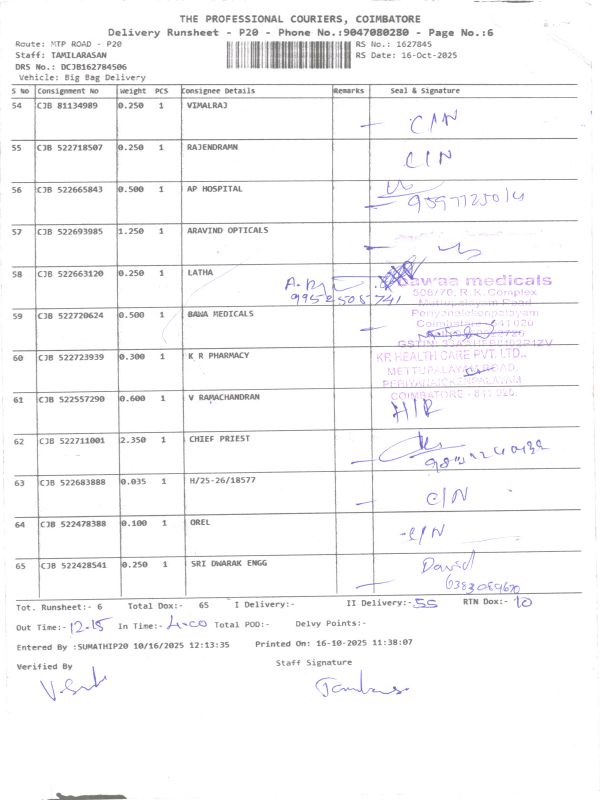 THE PROFESSIONAL COURIERS, COIMBATORE
Delivery Runsheet - P20 - Phone No.:9047080280 - Page No.:6
Route: MTP ROAD - P20 RS No.: 1627845
Staff: TAMILARASAN RS Date: 16-Oct-2025
DRS No.: DCJB162784506
Vehicle: Big Bag Delivery
S No Consignment No Weight PCS Consignee Details Remarks Seal & Signature
54 CJB 81134989 0.250 1 VIMALRAJ C/N
55 CJB 522718507 0.250 1 RAJENDRAMN C/N
56 CJB 522665843 0.500 1 AP HOSPITAL
57 CJB 522693985 1.250 1 ARAVIND OPTICALS
58 CJB 522663120 0.250 1 LATHA
9952508741
bawaa medicals
508/70, R.K. Complex
Mettupalayam Road
Periyanaickenpalayam
Coimbatore - 641 020
59 CJB 522720624 0.500 1 BAWA MEDICALS
60 CJB 522723939 0.300 1 K R PHARMACY
KR HEALTH CARE PVT. LTD.,
METTUPALAYAM ROAD,
PERIYANAICKENPALAYAM
COIMBATORE - 641 020.
61 CJB 522557290 0.600 1 V RAMACHANDRAN
62 CJB 522711001 2.350 1 CHIEF PRIEST
63 CJB 522683888 0.035 1 H/25-26/18577 C/N
64 CJB 522478388 0.100 1 OREL C/N
65 CJB 522428541 0.250 1 SRI DWARAK ENGG David
Tot. Runsheet:- 6 Total Dox:- 65 I Delivery:- II Delivery:- 55 RTN Dox:- 10
Out Time:- 12-15 In Time:- 4-00 Total POD:- Delvy Points:-
Entered By :SUMATHIP20 10/16/2025 12:13:35 Printed On: 16-10-2025 11:38:07
Verified By Staff Signature